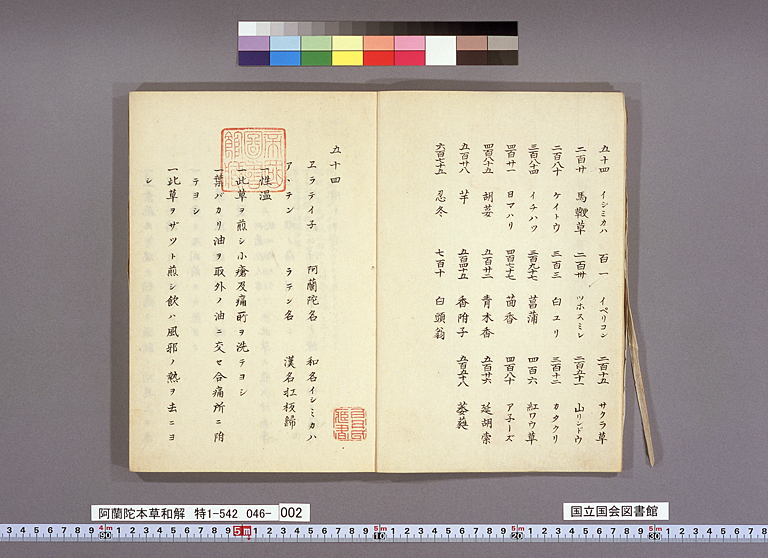 五十四 イシミカハ 百一 イペリコン 二百十五 サクラ草
二百廿 馬鞭草 二百卅 ツホスミレ 二百五十一 山リンドウ
二百八十 ケイトウ 三百三 白ユリ 三百十二 カタクリ
三百八十四 イチハツ 三百九十七 菖蒲 四百六 紅ワウ草
四百廿一 日マハリ 四百七十七 茴香 四百八十 ア子ーズ
四百八十五 胡荽 五百廿二 青木香 五百廿六 延胡索
五百廿八 芋 五百四十五 香附子 五百五十八
六百七十五 忍冬 七百十 白頭翁
五十四
ヱラテイ子 阿蘭陀名 和名イシミカハ
アトテン ラテン名 漢名扛板歸
一性温
一此草ヲ煎シ小瘡及痛所ヲ洗テヨシ
一葉バカリ油ヲ取外ノ油ニ交セ合痛所ニ附
テヨシ
一此草ヲザツト煎シ飲ハ風邪ノ熱ヲ去ニヨ
シ
阿蘭陀本草和解 特1-542 046- 002
国立国会図書館